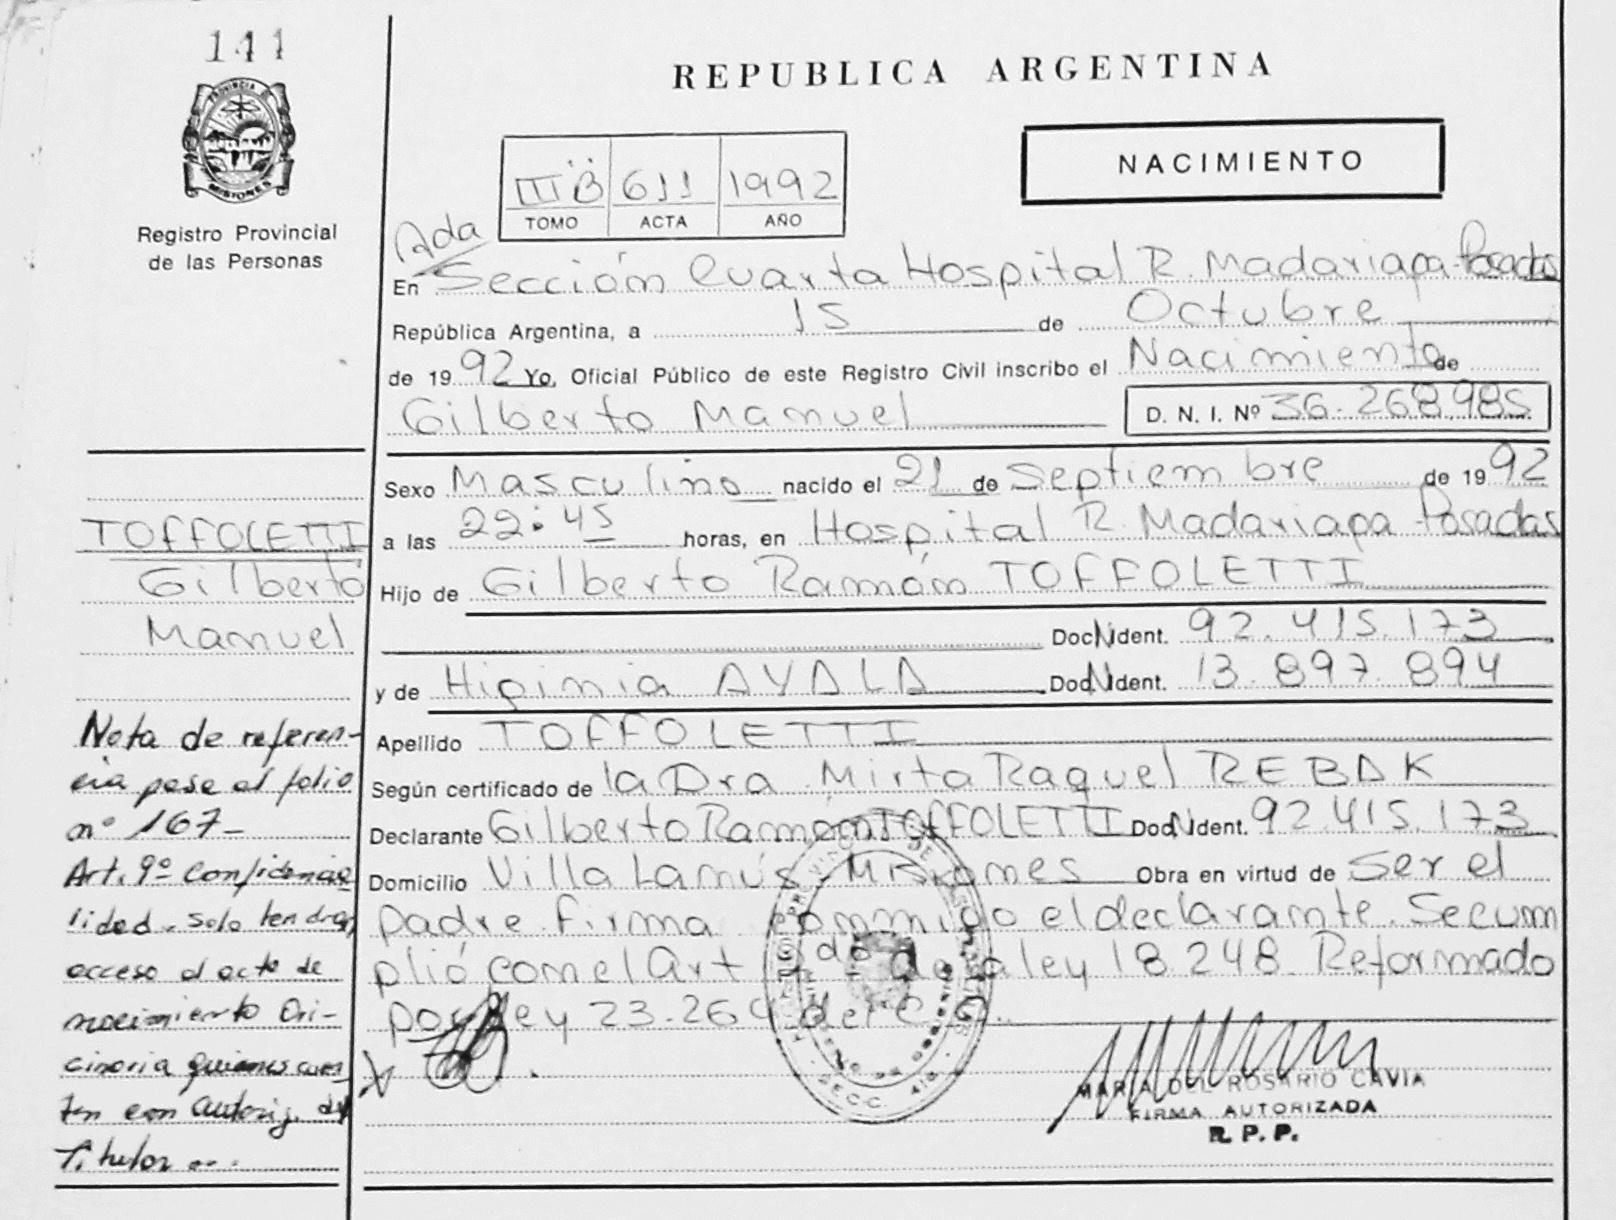 141
PROVINCIA
MISIONES
Registro Provincial
de las Personas
REPUBLICA ARGENTINA
NACIMIENTO
III B 611 1992
TOMO ACTA AÑO
Ada
En Sección Cuarta Hospital R. Madariaga Posadas
República Argentina, a 15 de Octubre
de 1992 Yo, Oficial Público de este Registro Civil inscribo el Nacimiento de
Gilberto Manuel D. N. I. Nº 36.268.985
Sexo Masculino nacido el 21 de Septiembre de 1992
a las 22:45 horas, en Hospital R. Madariaga Posadas
Hijo de Gilberto Ramón TOFFOLETTI
Doc. N Ident. 92.415.173
y de Higinia AYALA Doc. N Ident. 13.897.894
Apellido TOFFOLETTI
Según certificado de la Dra. Mirta Raquel REBAK
Declarante Gilberto Ramón TOFFOLETTI Doc. N Ident. 92.415.173
Domicilio Villa Lanús - Misiones Obra en virtud de Ser el
padre firma conmigo el declarante. Se cum
plió con el Art de la ley 18.248 Reformado
por ley 23.264 del
MARIA DEL ROSARIO CAVIA
FIRMA AUTORIZADA
R. P. P.
TOFFOLETTI
Gilberto
Manuel
Nota de referen-
cia pase al folio
nº 167-
Art. 9º Confidencia
lidad. solo tendran
acceso al acta de
nacimiento Ori-
ginaria quienes cuen-
ten con autoriz. del
Titular